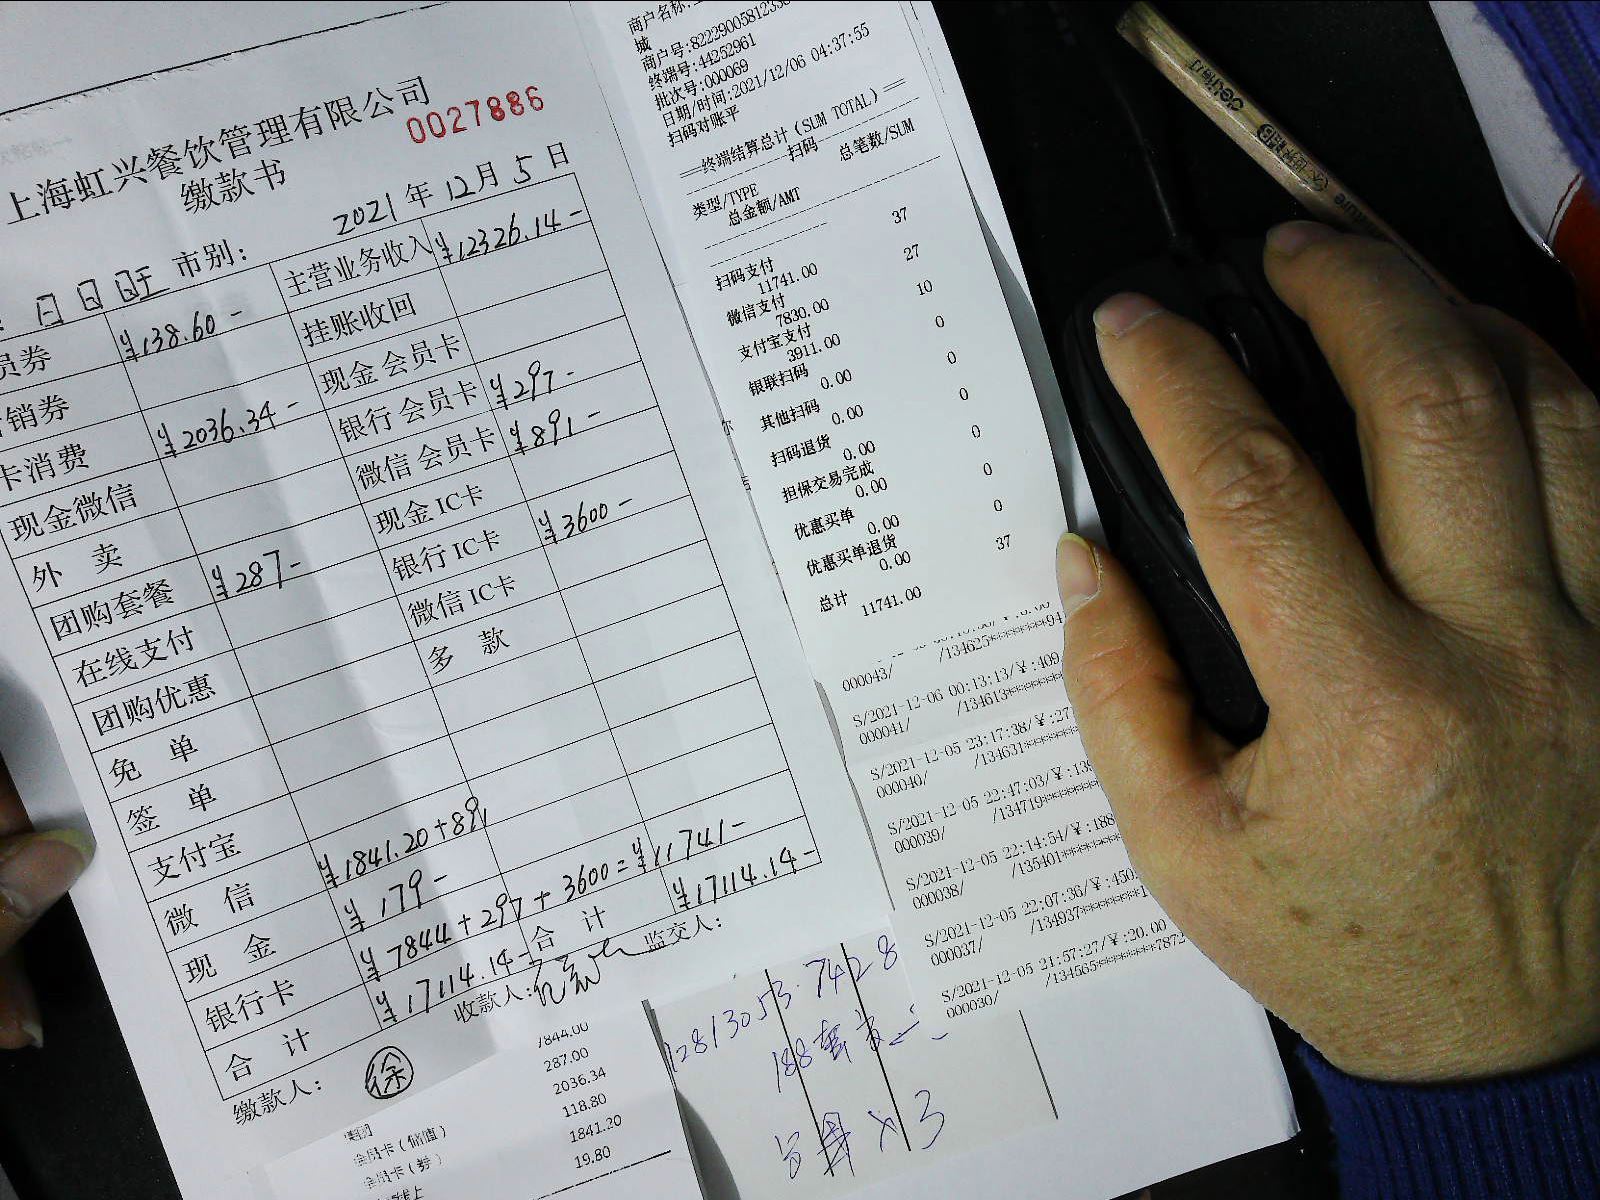 上海虹兴餐饮管理有限公司
0027886
缴款书
2021年12月5日
市别:
员券 ¥138.60- 主营业务收入 ¥12326.14-
销券 挂账收回
卡消费 ¥2036.34- 现金会员卡
现金微信 银行会员卡 ¥297-
外 卖 微信会员卡 ¥891-
团购套餐 ¥287- 现金IC卡
在线支付 银行IC卡 ¥3600-
团购优惠 微信IC卡
免 单 多 款
签 单
支付宝
微 信 ¥1841.20+891
现 金 ¥179-
银行卡 ¥7844+297+3600=¥11741-
合 计 ¥17114.14- 合 计 ¥17114.14-
缴款人: 徐 收款人: 监交人:
1844.00
287.00
2036.34
会员卡(储值) 118.80
会员卡(券) 1841.20
19.80
商户名称:
城
商户号:8222900581233
终端号:44252961
批次号:000069
日期/时间:2021/12/06 04:37:55
扫码对账平
==终端结算总计(SUM TOTAL)==
扫码
类型/TYPE 总笔数/SUM
总金额/AMT
扫码支付 37
11741.00
微信支付 27
7830.00
支付宝支付 10
3911.00
银联扫码 0
0.00
其他扫码 0
0.00
扫码退货 0
0.00
担保交易完成 0
0.00
优惠买单 0
0.00
优惠买单退货 0
0.00
总计 37
11741.00
/134625*******94
000043/
S/2021-12-06 00:13:13/¥:409
000041/ /134613*******
S/2021-12-05 23:17:38/¥:27
000040/ /134631*******
S/2021-12-05 22:47:03/¥:139
000039/ /134719*******
S/2021-12-05 22:14:54/¥:188
000038/ /135401*******
S/2021-12-05 22:07:36/¥:450.
000037/ /134937*******1
S/2021-12-05 21:57:27/¥:20.00
000030/ /134565*******7872
12813053.7428
188套
x3
deli得力